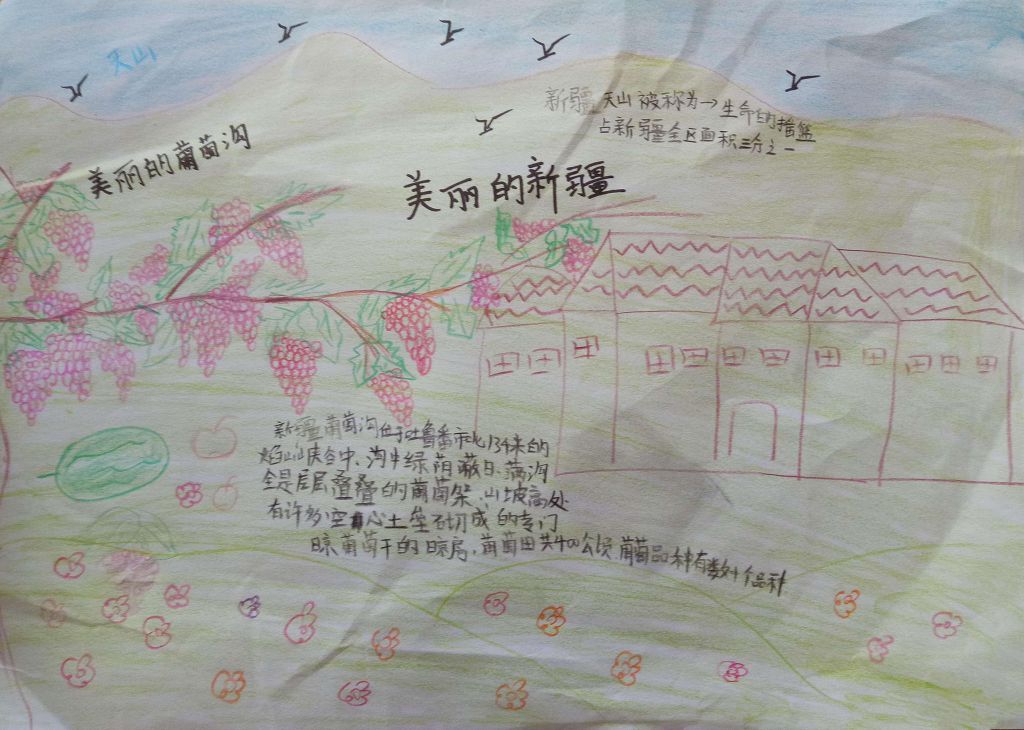 天山
新疆天山被称为→生命的摇篮
占新疆全区面积三分之一
美丽的葡萄沟
美丽的新疆
新疆葡萄沟位于吐鲁番市北13千米的
焰山峡谷中，沟中绿荫蔽日，满沟
全是层层叠叠的葡萄架，山坡高处
有许多空心土垒砌成的专门
晾葡萄干的晾房，葡萄田共400公顷葡萄品种有数十个品种